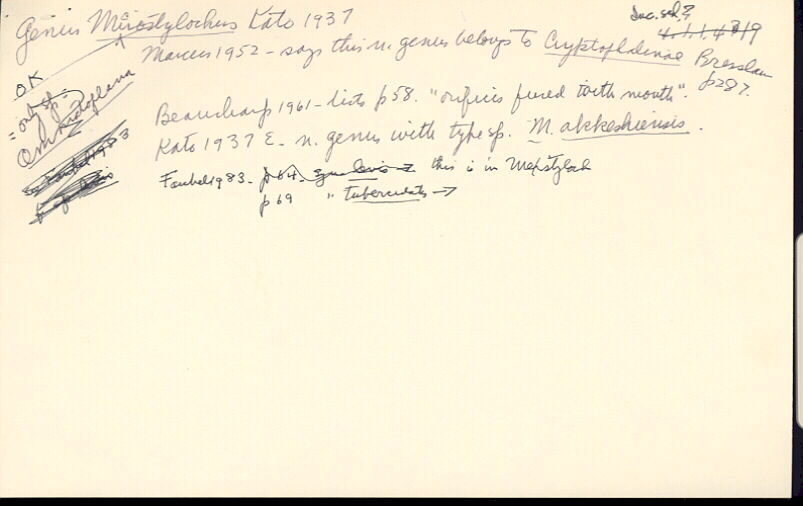 Genus Microstylochus Kato 1937
Inc. sed.?
4.1.1.4319
Marcus 1952 - says this n. genus belongs to Cryptophalenae Bresslau
p287.
OK
"only sp."
Beauchamp 1961 - lists p58. "orifices fused with mouth".
Kato 1937 E - n. genus with type sp. M. akkeshiensis.
Faubel 1983 - p 64 → this is in Mexistyloch
p 69 " tuberculatus →